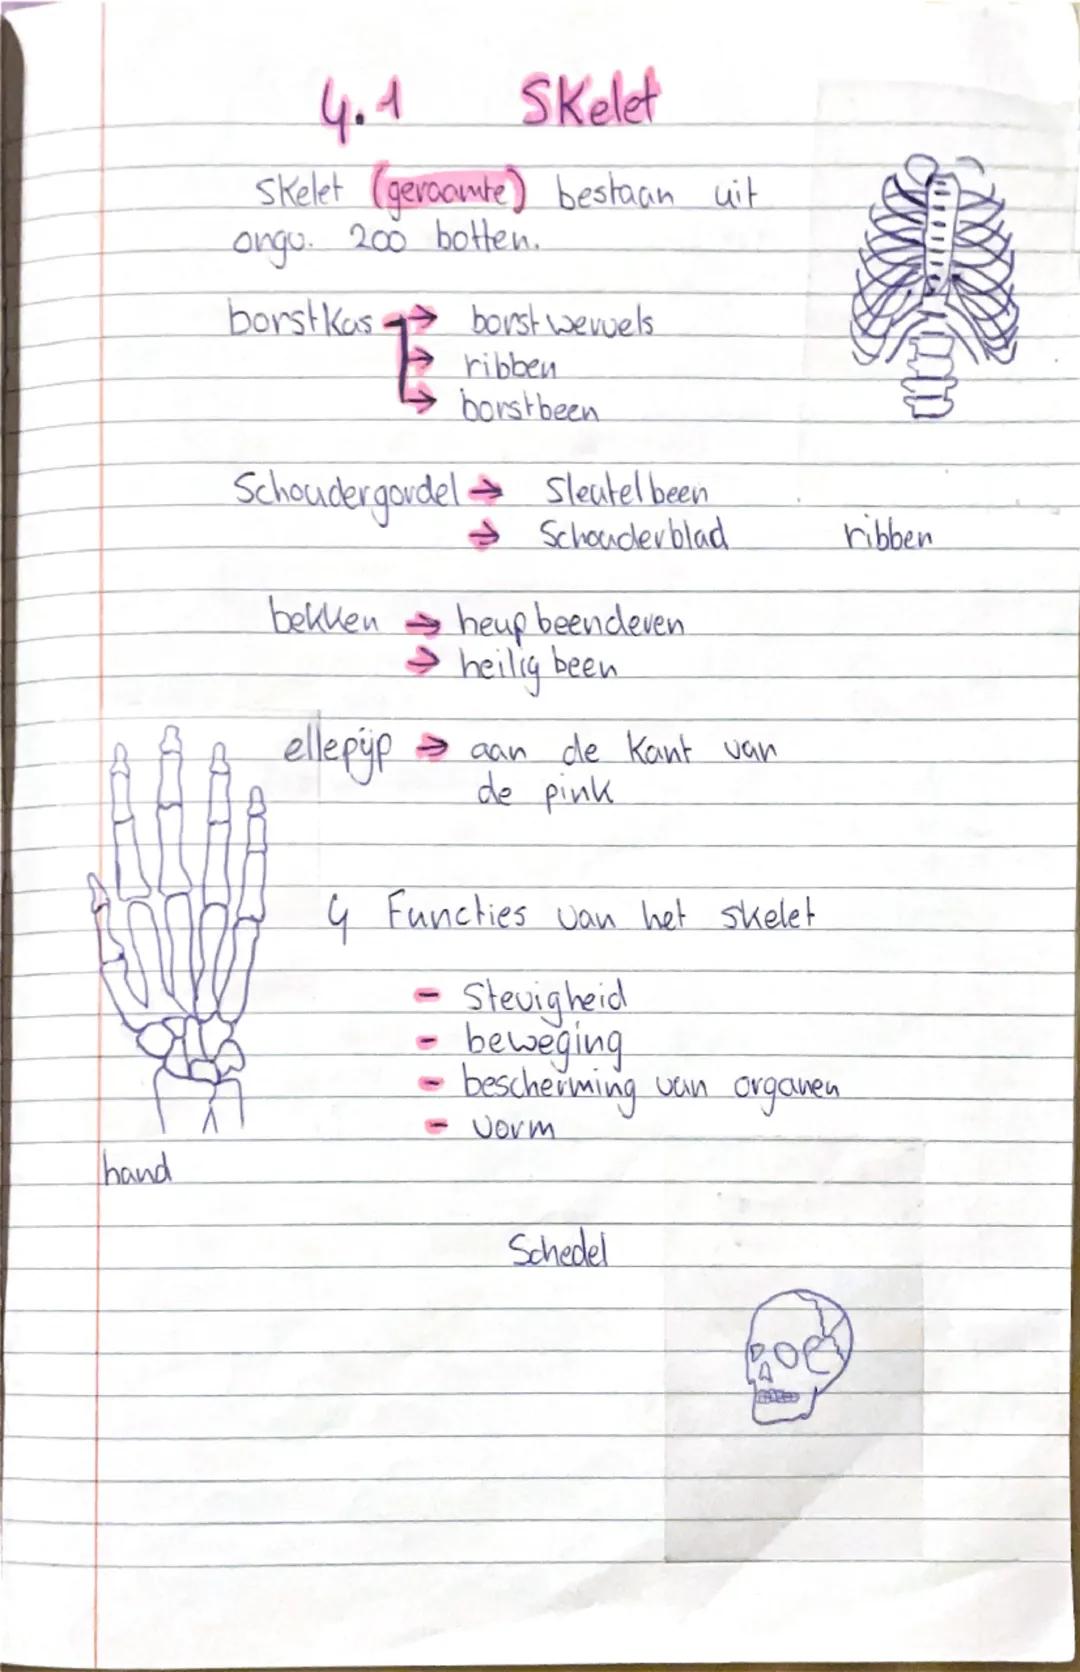 4.1 Skelet
Skelet (geraamte) bestaan uit
ongv. 200 botten.
borstkas → borstwervels
→ ribben
→ borstbeen
Schoudergordel → Sleutelbeen
→ Schouderblad
ribben
bekken → heupbeenderen
→ heilig been
ellepijp → aan de kant van
de pink
4 Functies van het skelet
- Stevigheid
- beweging
- bescherming van organen
- vorm
hand
Schedel